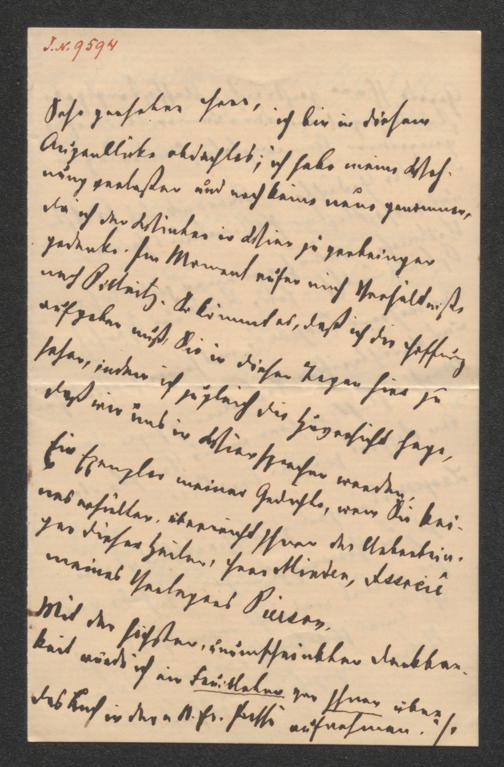 J.N. 9594
Sehr geehrter Herr, ich bin in diesem
Augenblicke obdachlos; ich habe meine Woh-
nung verlassen und noch keine neue genommen,
da ich den Winter in Wien zu verbringen
gedenke. Im Moment rufen mich Verhältnisse
nach Pillnitz. So kömmt es, daß ich die Hoffnung
aufgeben muß, Sie in diesen Tagen hier zu
sehen, indem ich zugleich die Zuversicht hege,
daß wir uns in Wien sprechen werden.
Ein Exemplar meiner Gedichte, wenn Sie kei-
nes erhielten, überreicht Ihnen der Ueberbrin-
ger dieser Zeilen, Herr Minden, Associé
meines Verlegers Pierson.
Mit der höchsten, unumschränkten Dankbar-
keit würde ich ein Feuilleton von Ihnen über
das Buch in der N. Fr. Presse aufnehmen.